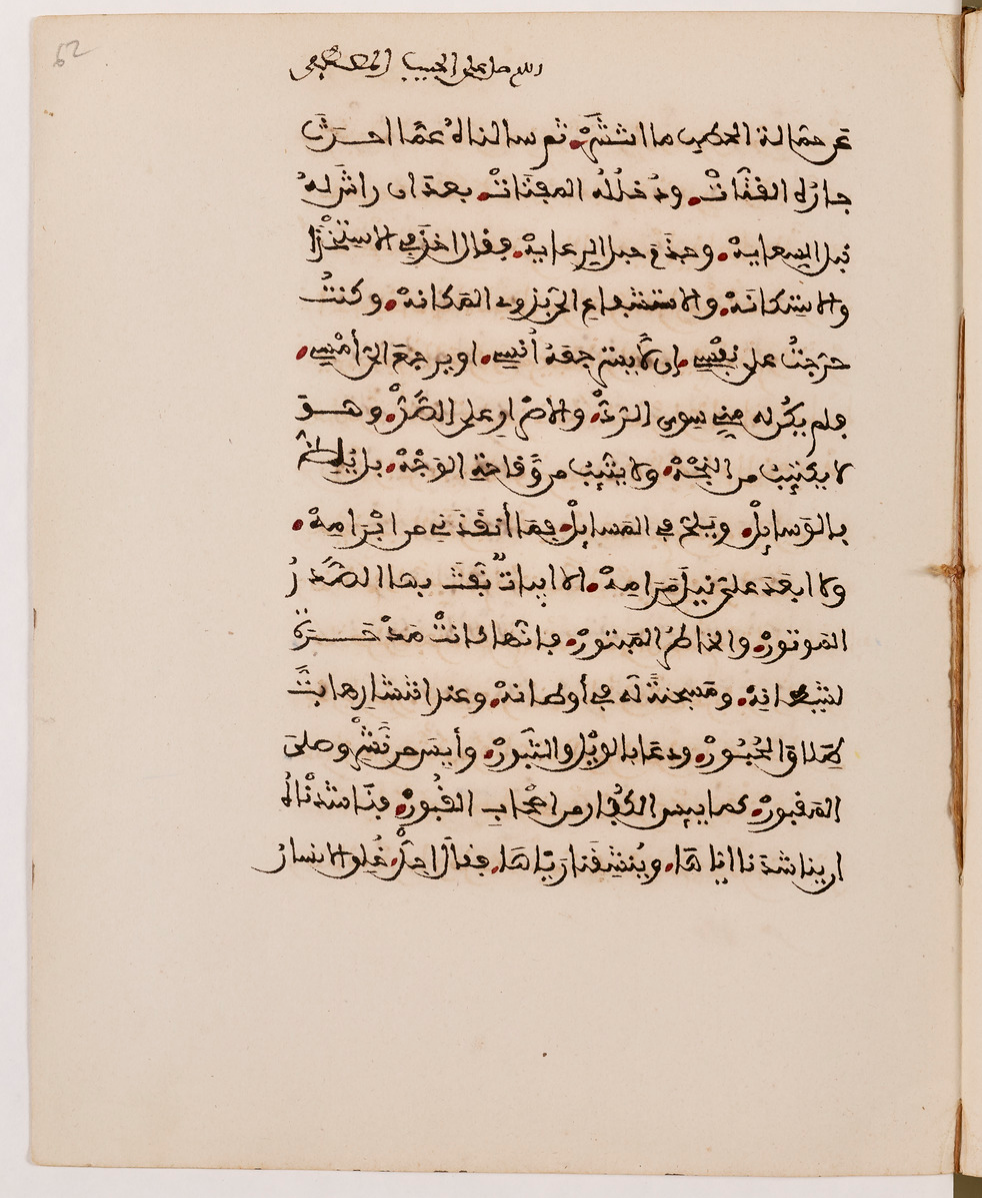 62
اللهم صل على الحبيب المصطفى
عن حمالة الحطب ما اشتهر ثم سالناه عما احدث
جاره القتات ودخلله المفتات بعد ان راش له
نبل السعاية وجذم حبل الرعاية فقال اخذ في الاستخذا
والاستكانة والاستشفاع الي بذوي المكانة وكنت
حرجت على نفسي ان لا يسترجعه أنسي او يرجع الي أمسي
فلم يكن له مني سوى الرد والاصرار على الصد وهو
لا يكتيب من النجه ولا يتيب من وقاحة الوجه بل يلط
بالوسايل ويلح في المسايل فما أنقذني من ابرامه
ولا ابعد عليه نيل مرامه الا ابيات نفث بها الصدر
الموتور والخاطر المبتور فانها كانت مدحرة
لشيطانه ومسجنة له في أوطانه وعند انتشارها بت
طلاق الحبور ودعا بالويل والثبور وأيس من نشر وصلي
المقبور كما ييس الكفار من اصحاب القبور فناشدناه
ان ينشدنا اياها وينشقنا رياها فقال اجل خلق الانسان